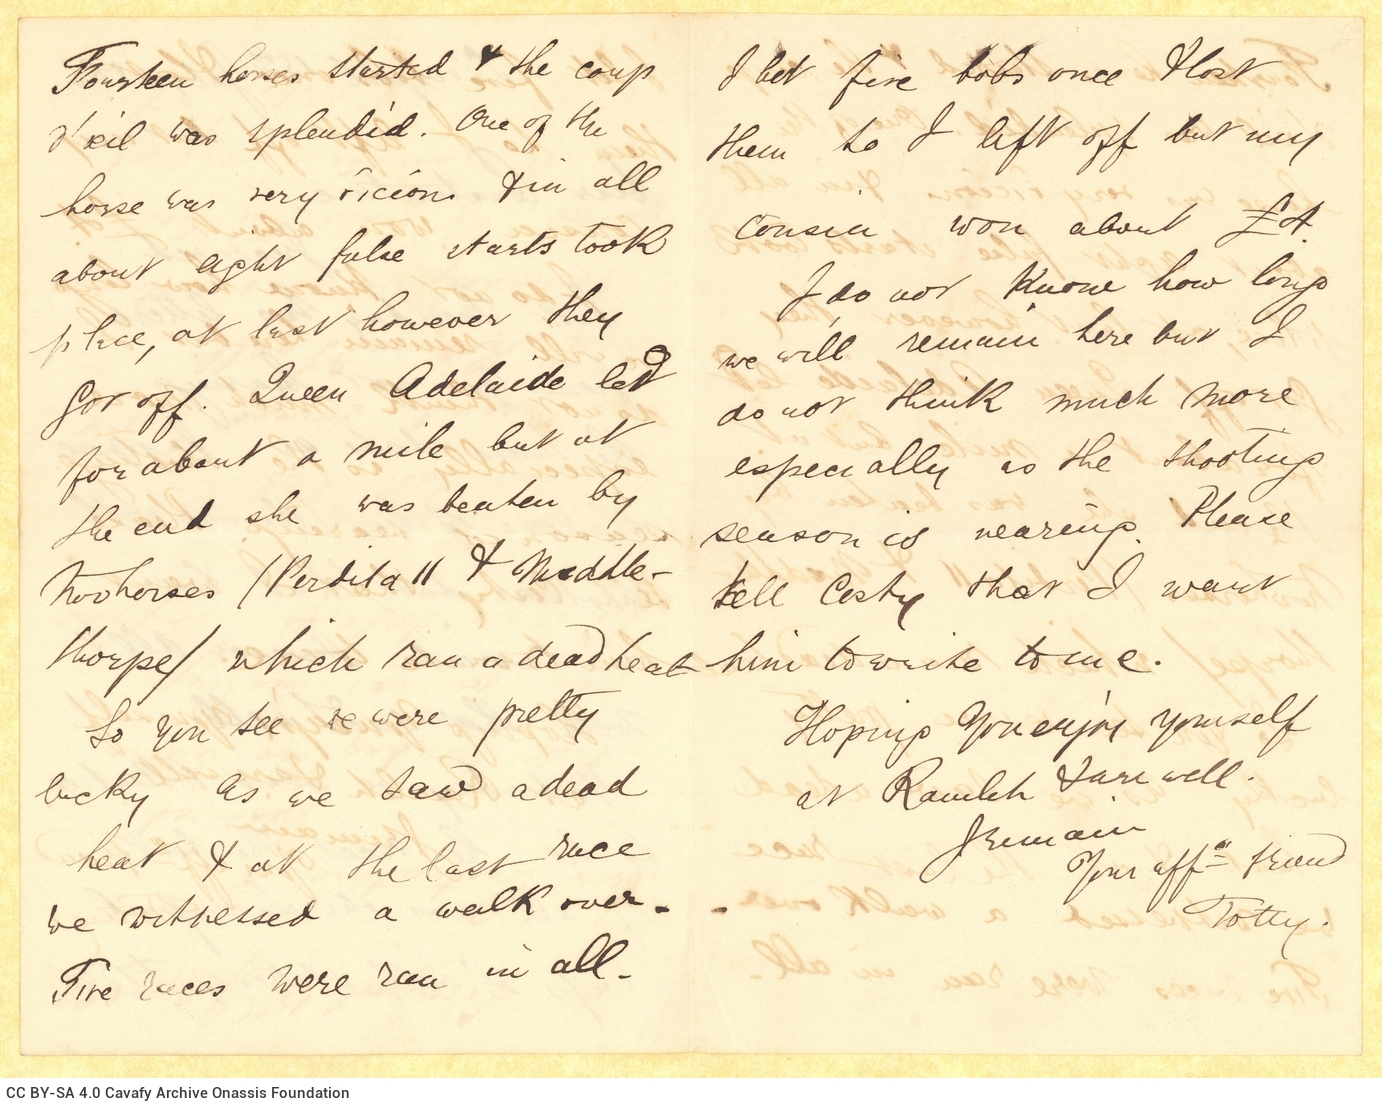 Fourteen horses started & the coup
d'œil was splendid. One of the
horse was very vicious & in all
about eight false starts took
place, at last however they
got off. Queen Adelaide led
for about a mile but at
the end she was beaten by
two horses /Perdita II & Middle-
thorpe/ which ran a dead heat
So you see we were pretty
lucky as we saw a dead
heat & at the last race
we witnessed a walk over.
Five races were ran in all.
I bet five bobs once & lost
them so I left off but my
cousin won about £4.
I do not know how long
we will remain here but I
do not think much more
especially as the shooting
season is nearing. Please
tell Costy that I want
him to write to me.
Hoping you enjoy yourself
at Ramleh & are well.
I remain
Your aff.te friend
Totty.
CC BY-SA 4.0 Cavafy Archive Onassis Foundation